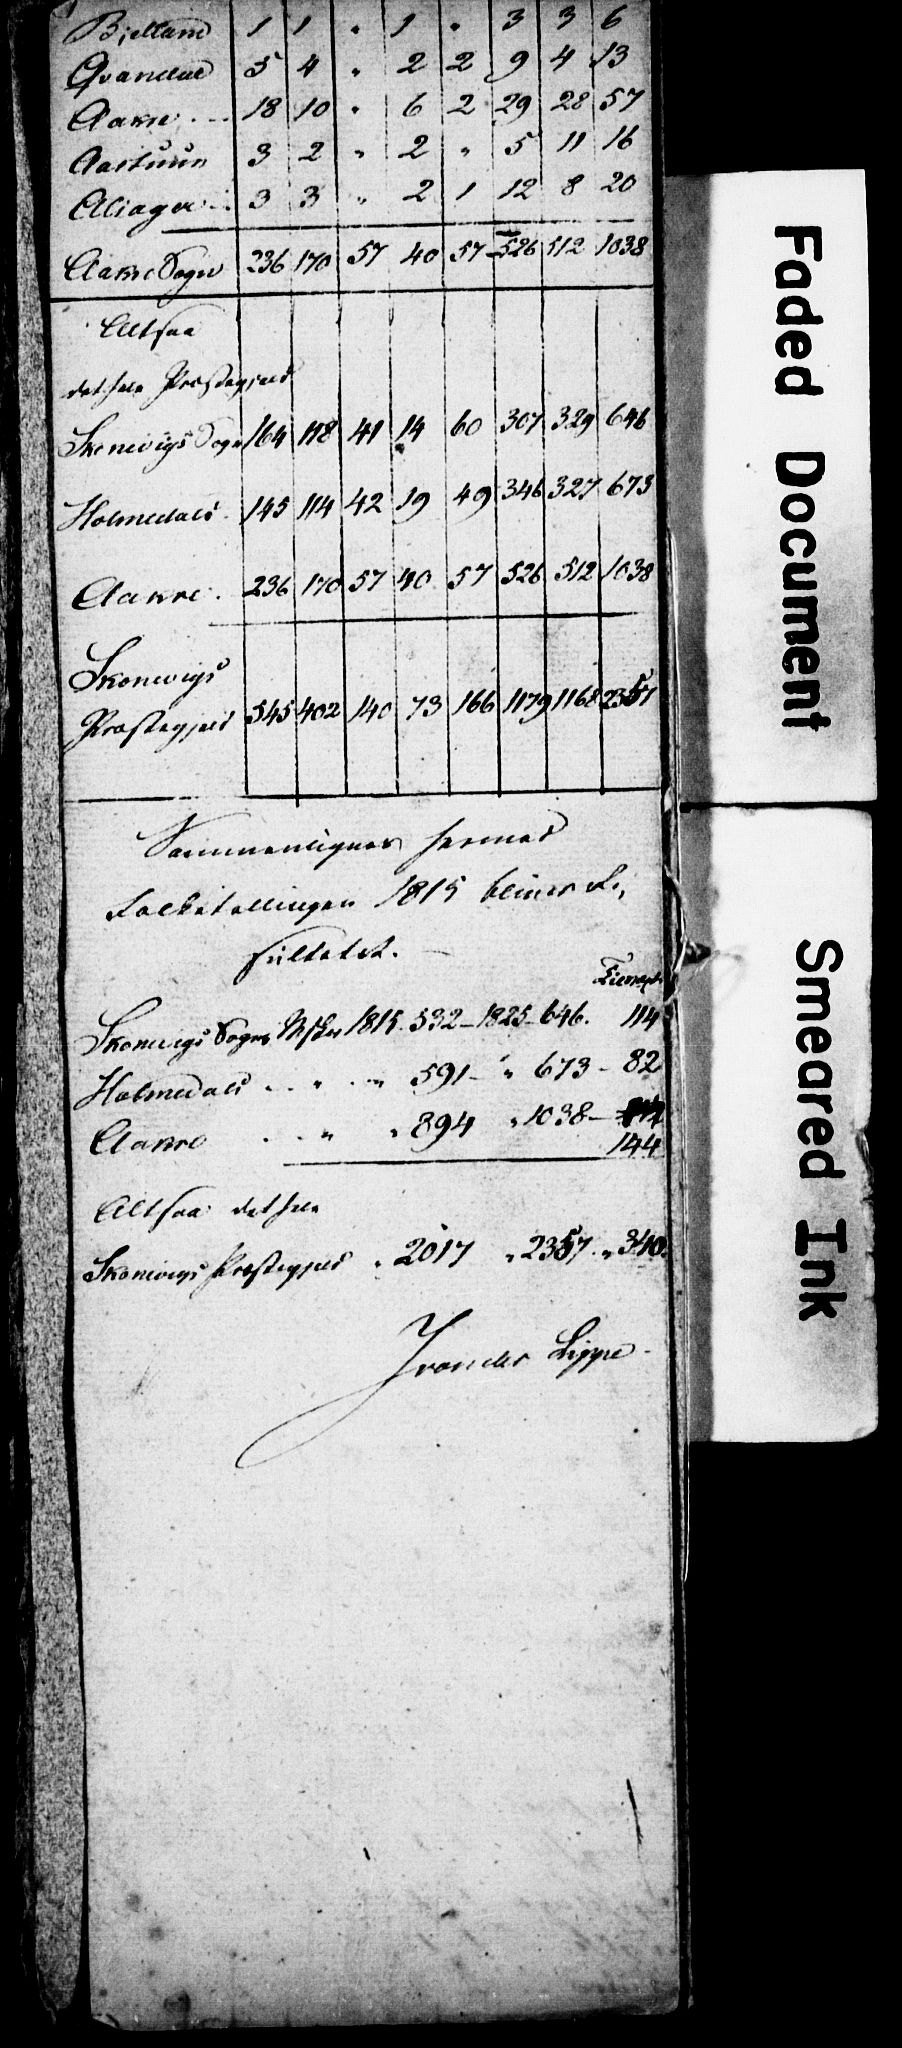 Bjelland 1 1 " 1 " 3 3 6
Qvandal 5 4 " 2 2 9 4 13
Aakre 18 10 " 6 2 29 28 57
3 2 " 2 " 5 11 16
3 3 " 2 1 12 8 20
Aakre Sogn 236 170 57 40 57 526 512 1038
Altsaa
det hele Præstegjeld
Skonevigs Sogn 164 118 41 14 60 307 329 646
Holmedals 145 114 42 19 49 346 327 673
Aakre. 236 170 57 40 57 526 512 1038
Skonevigs
Præstegjeld 545 402 140 73 166 1179 1168 2357
Sammenlignes hermed
Folketællingen 1815 bliver Re-
sultatet. —
Skonevigs Sogn 1815. 532 – 1825 – 646. 114
Holmedals . . " . " 591 – " 673 – 82
Aakre . . " " 894 " 1038 –
144
Altsaa det hele
Skonevigs Præstegjeld " 2017 " 2357 " 340.
Lippe
Faded Document
Smeared Ink